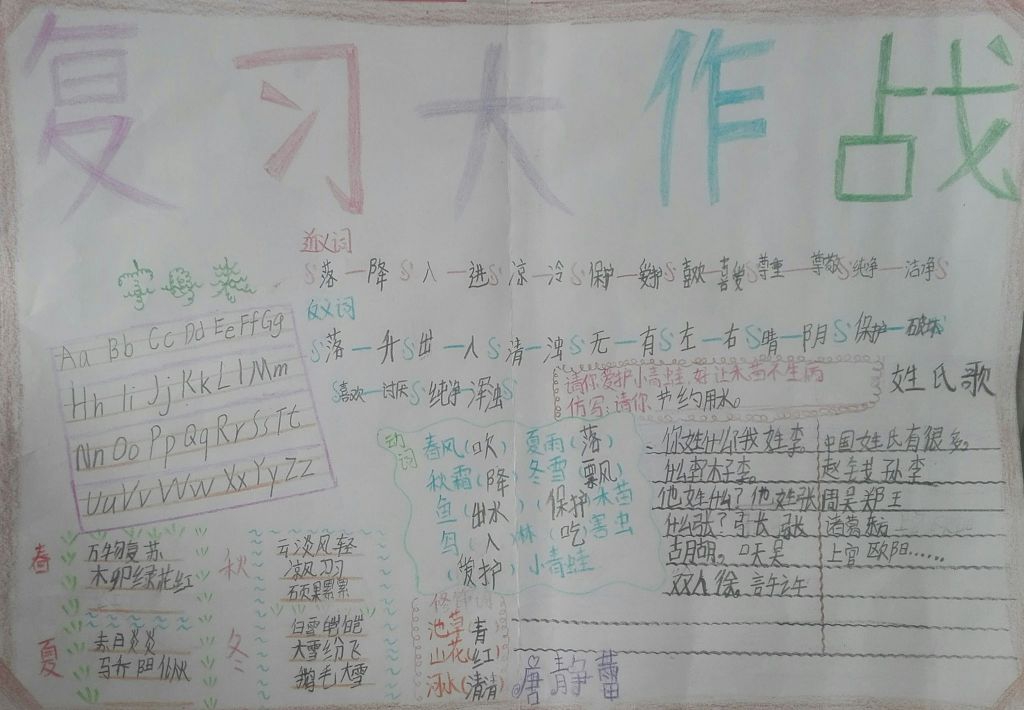 复习大作战
近义词
落—降 入—进 凉—冷 保护—爱护 喜欢—喜爱 尊重—尊敬 纯净—洁净
反义词
落—升 出—入 清—浊 无—有 左—右 晴—阴 保护—破坏
喜欢—讨厌 纯净—浑浊
Aa Bb Cc Dd Ee Ff Gg
Hh Ii Jj Kk Ll Mm
Nn Oo Pp Qq Rr Ss Tt
Uu Vv Ww Xx Yy Zz
请你爱护小青蛙,好让禾苗不生病
仿写:请你节约用水。
动词
春风(吹) 夏雨(落)
秋霜(降) 冬雪(飘)
鱼(出水) (保护)禾苗
鸟(入)林 (吃)害虫
(爱护)小青蛙
姓氏歌
你姓什么?我姓李。
什么李?木子李。
他姓什么?他姓张
什么张?弓长张
古月胡。口天吴
双人徐。言午许
中国姓氏有很多。
赵钱孙李
周吴郑王
诸葛
上官 欧阳……
春
万物复苏
木卯绿花红
夏
赤日炎炎
秋
云淡风轻
凉风习习
硕果累累
冬
白雪皑皑
大雪纷飞
鹅毛大雪
修饰词
池草(青)
山花(红)
河水(清清)
唐静蕾